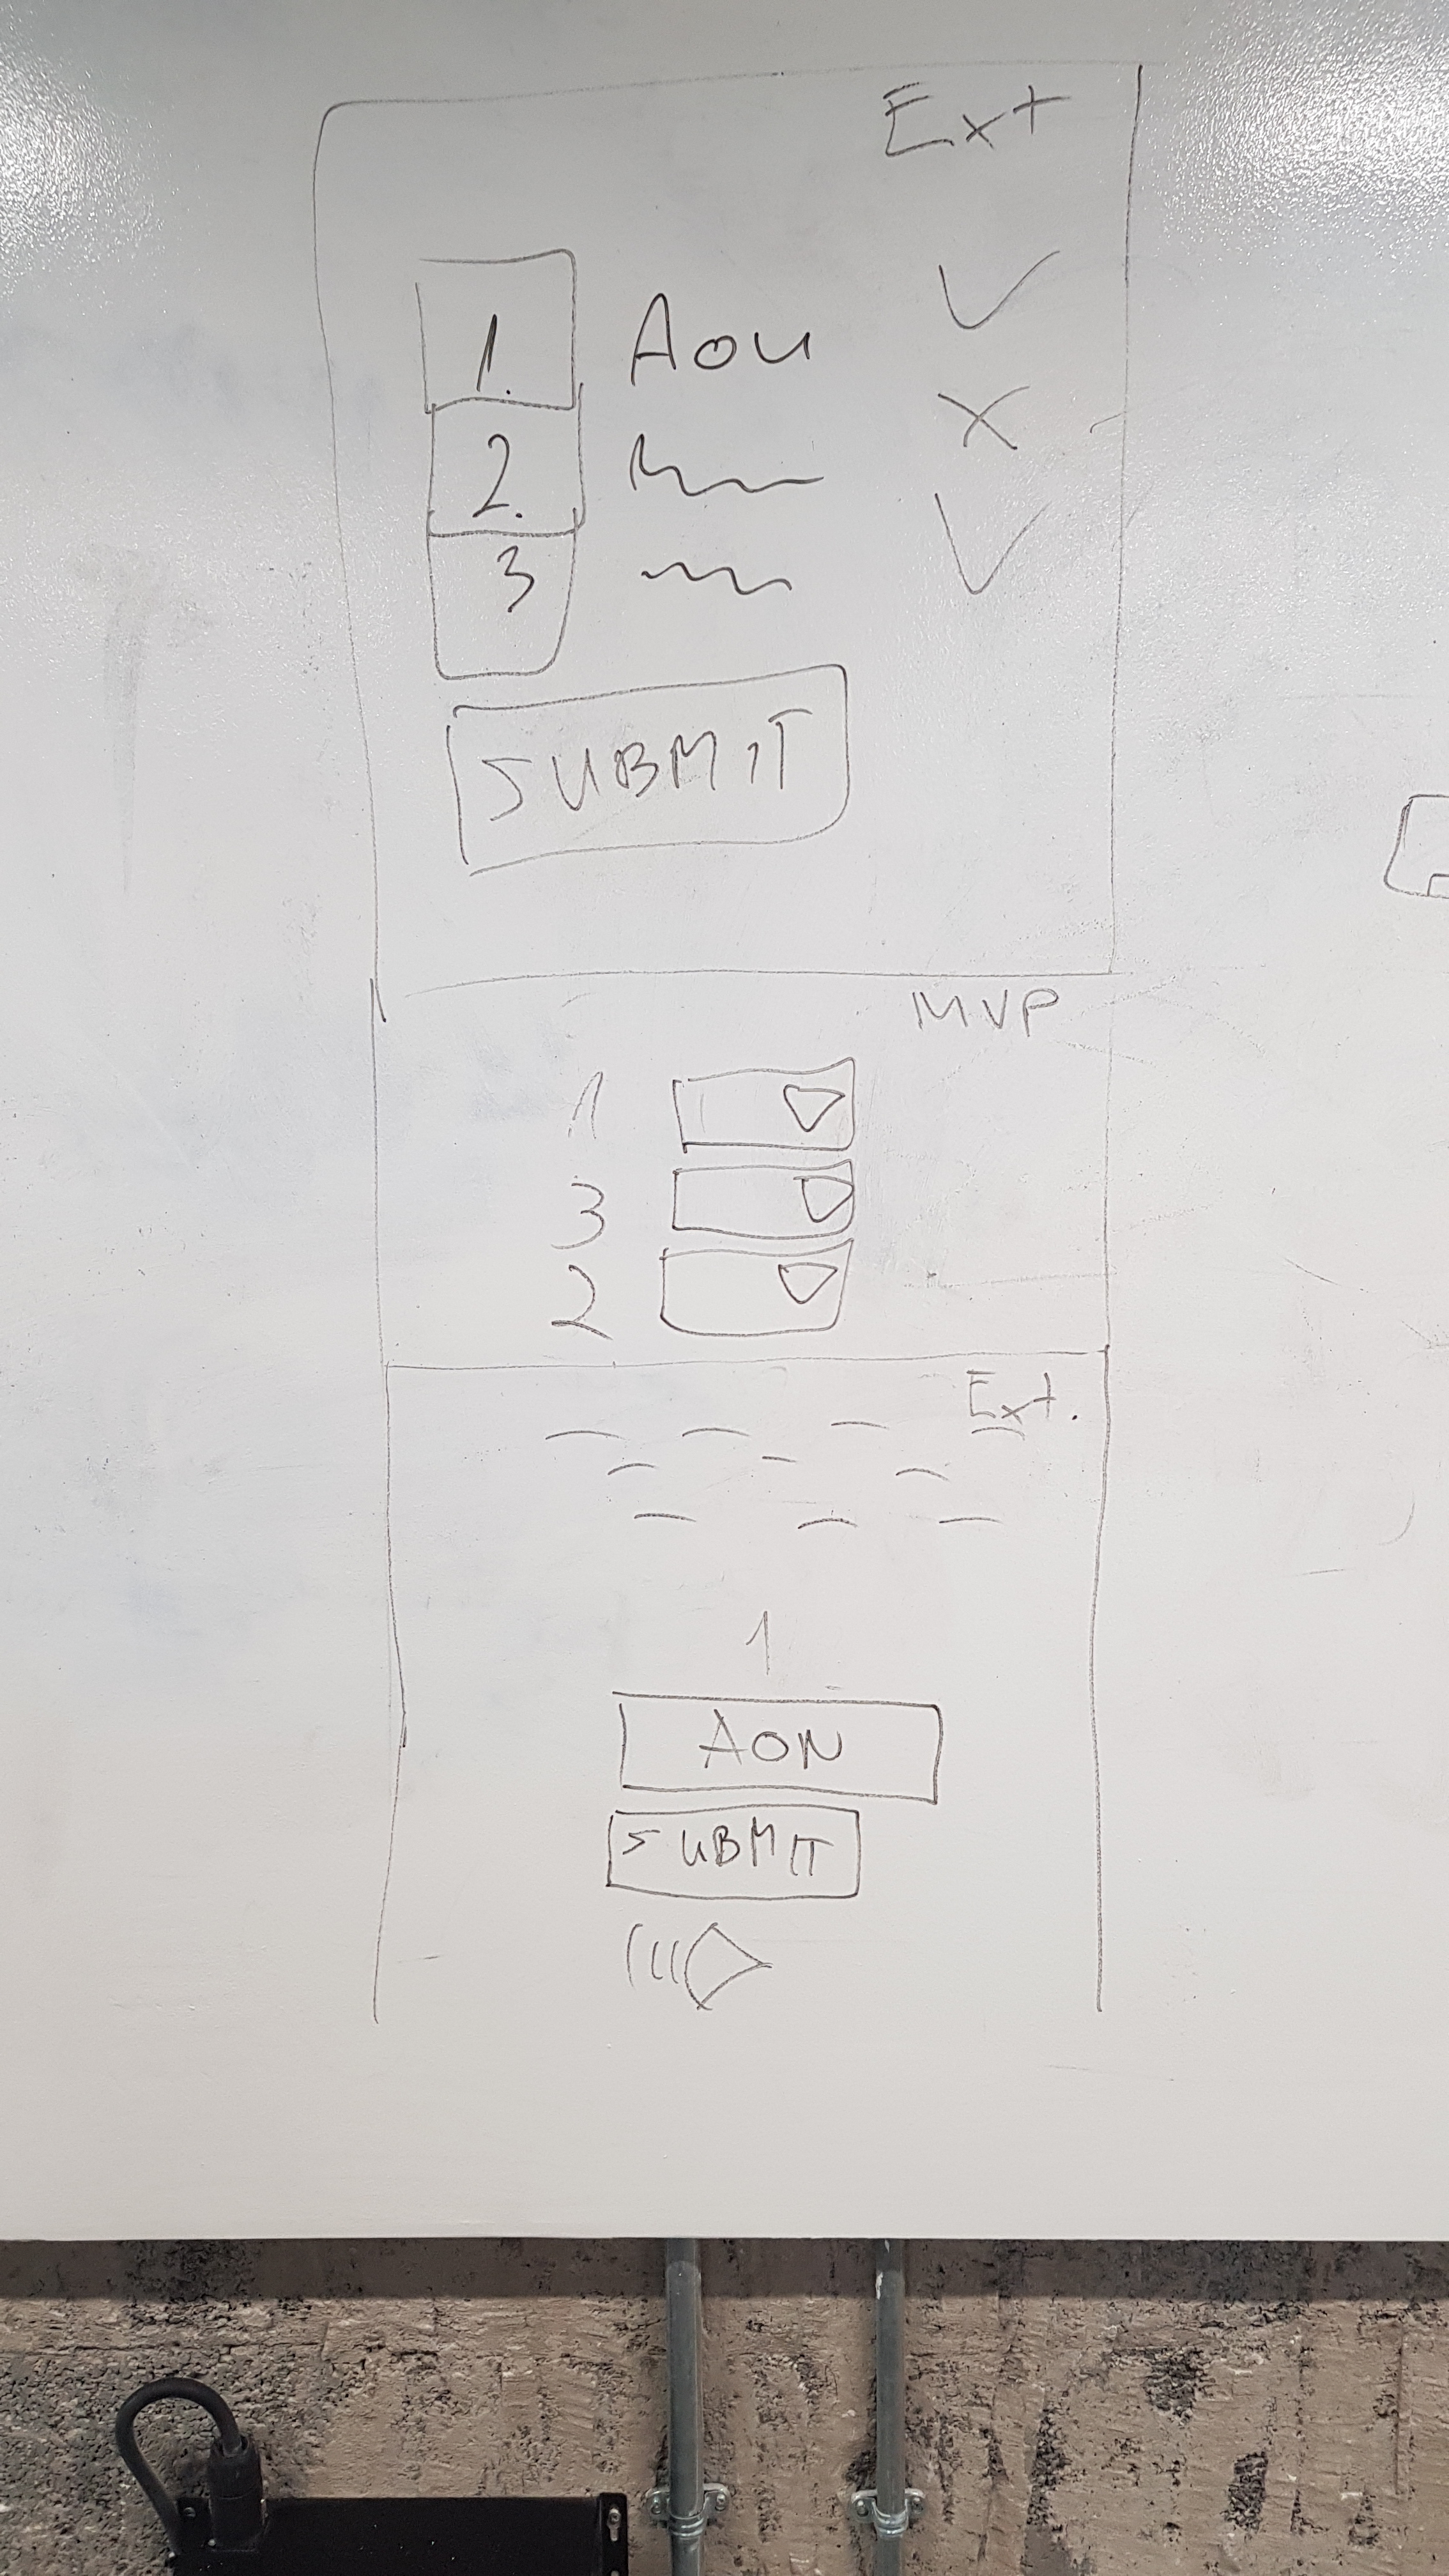 Ext
1. Aou
2.
3
SUBMIT
MVP
1
3
2
Ext.
1
AON
SUBMIT